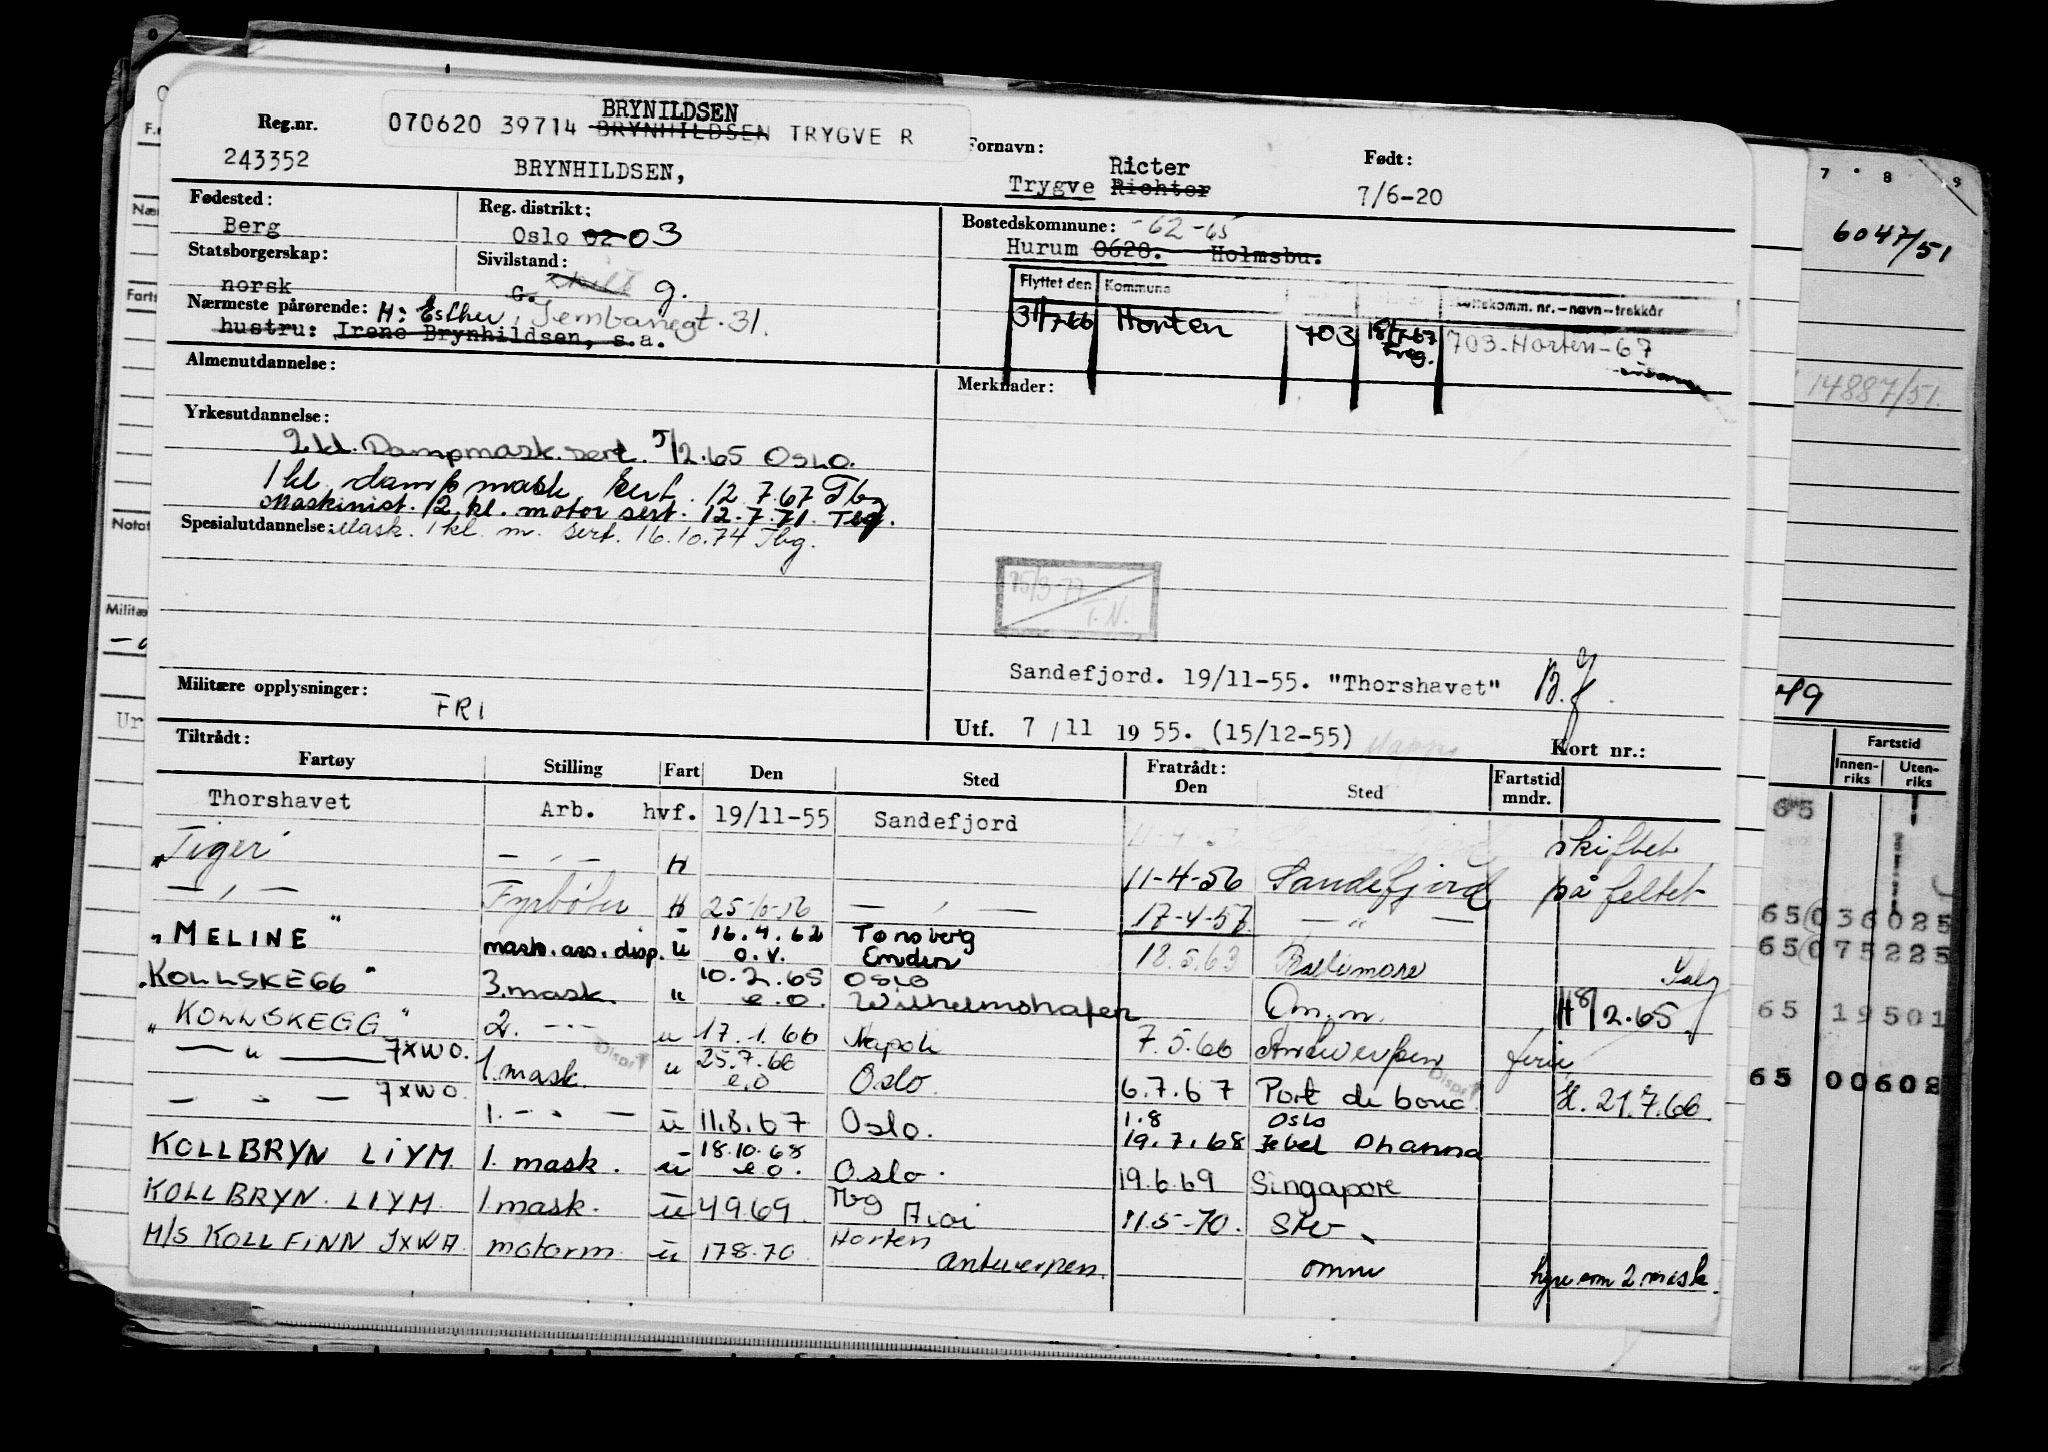 BRYNILDSEN
070620 39714 BRYNHILDSEN TRYGVE R
Reg.nr.
243352
BRYNHILDSEN,
Fornavn:
Ricter
Trygve Richter
Født:
7/6-20
Fødested:
Berg
Reg. distrikt:
Oslo 02 03
Bostedskommune: -62-65
Hurum 0628. Holmsbu.
Statsborgerskap:
norsk
Sivilstand:
G. skilt g.
Flyttet den Kommune
komm. nr.-navn-trekkår
31/7-66 Horten 703 18/1-67 Freg. 703-Horten-67
Nærmeste pårørende: H: Esther,
31.
hustru: Irene Brynhildsen, s.a.
Almenutdannelse:
Merknader:
Yrkesutdannelse:
2 kl. Dampmask. sert. 5/2.65 Oslo.
1 kl damp mask sert. 12.7.67 Tbg
Maskinist. 2. kl. motor sert. 12.7.71. Tbg.
Spesialutdannelse: Mask. 1 kl. m. sert. 16.10.74 Tbg.
15/3-77
T.N.
Sandefjord. 19/11-55. "Thorshavet"
Militære opplysninger:
FRI
Utf. 7/11 1955. (15/12-55) Mappe
Kort nr.:
Tiltrådt:
Fartøy Stilling Fart Den Sted Fratrådt: Den Sted Fartstid mndr.
Thorshavet Arb. hvf. 19/11-55 Sandefjord
skiftet
"Tiger" — " — H 11-4-56 Sandefjord på feltet
— " — Fyrbøter H 25-10-56 — " — 17-4-57 — " —
"MELINE" mask. ass. disp. u 16.4.62 Tønsberg
o.v. Emden 18.5.63 Baltimore Salg
"KOLLSKEGG" 3. mask. " 10.2.65 Oslo
e.o. Wilhelmshafen Om.m. H 8/2.65
"KOLLSKEGG" 2. — " — u 17.1.66 Napoli 7.5.66 Antwerpen ferie
— " — JXWO. 1. mask. u 25.7.66
e.o Oslo. 6.7.67 Port de bouc H. 21.7.66.
Disp
Disp
— " — JXWO. 1. — " — u 11.8.67 Oslo. 1.8 Oslo
19.7.68 Jebel Dhanna
KOLLBRYN LIYM. 1. mask. u 18.10.68
e.o. Oslo. 19.6.69 Singapore
KOLLBRYN. LIYM. 1. mask. u 4.9.69. Tbg 11.5-70.
M/S KOLLFINN JXWA. motorm. u 17.8.70 Horten
Antwerpen. omm hyre som 2 mask.
7 8 9
6047/51
14887/51.
49
Fartstid
Innen-riks Uten-riks
65
65 036025
65 075225
65 19501
65 00602
F.
Næ
Farts
Notat
Militæ
Ur